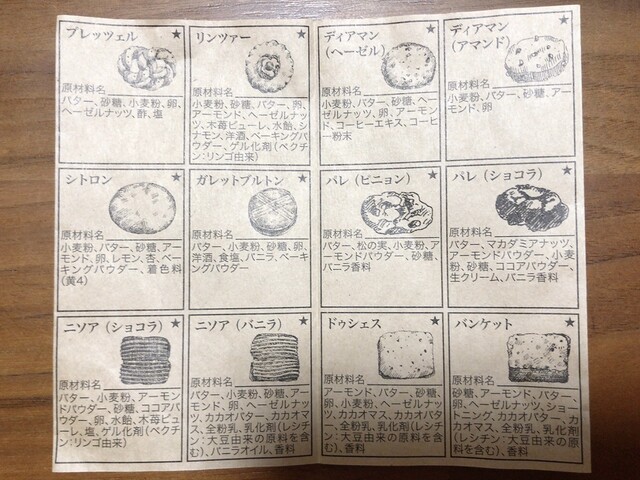 プレッツェル ★
原材料名
バター、砂糖、小麦粉、卵、
ヘーゼルナッツ、酢、塩
リンツァー ★
原材料名
小麦粉、砂糖、バター、卵、
アーモンド、ヘーゼルナッ
ツ、木苺ピューレ、水飴、シ
ナモン、洋酒、ベーキングパ
ウダー、ゲル化剤（ペクチ
ン：リンゴ由来）
ディアマン ★
（ヘーゼル）
原材料名
小麦粉、バター、砂糖、ヘー
ゼルナッツ、卵、アーモン
ド、コーヒーエキス、コーヒ
ー粉末
ディアマン ★
（アマンド）
原材料名
小麦粉、バター、砂糖、アー
モンド、卵
シトロン ★
原材料名
小麦粉、バター、砂糖、アー
モンド、卵、レモン、杏、ベー
キングパウダー、着色料
（黄4）
ガレットブルトン ★
原材料名
バター、小麦粉、砂糖、卵、
洋酒、食塩、バニラ、ベーキ
ングパウダー
パレ（ピニョン） ★
原材料名
バター、松の実、小麦粉、ア
ーモンドパウダー、砂糖、
バニラ香料
パレ（ショコラ） ★
原材料名
バター、マカダミアナッツ、
アーモンドパウダー、小麦
粉、砂糖、ココアパウダー、
生クリーム、バニラ香料
ニソア（ショコラ） ★
原材料名
バター、小麦粉、アーモン
ドパウダー、砂糖、ココアパ
ウダー、卵、水飴、木苺ピュ
ーレ、塩、ゲル化剤（ペクチ
ン：リンゴ由来）
ニソア（バニラ） ★
原材料名
バター、小麦粉、砂糖、アー
モンド、卵、ヘーゼルナッ
ツ、カカオバター、カカオマ
ス、全粉乳、乳化剤（レシチ
ン：大豆由来の原料を含
む）、バニラオイル、香料
ドゥシェス ★
原材料名
アーモンド、バター、砂糖、
卵、小麦粉、ヘーゼルナッ
ツ、カカオマス、カカオバタ
ー、全粉乳、乳化剤（レシチ
ン：大豆由来の原料を含
む）、香料
バンケット ★
原材料名
砂糖、アーモンド、バター、
卵、ヘーゼルナッツ、ショー
トニング、カカオバター、カ
カオマス、全粉乳、乳化剤
（レシチン：大豆由来の原
料を含む）、香料